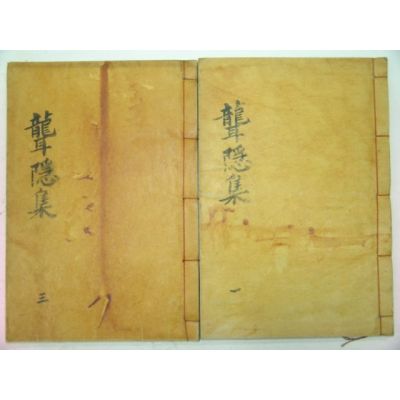 聾隱集
一
聾隱集
三